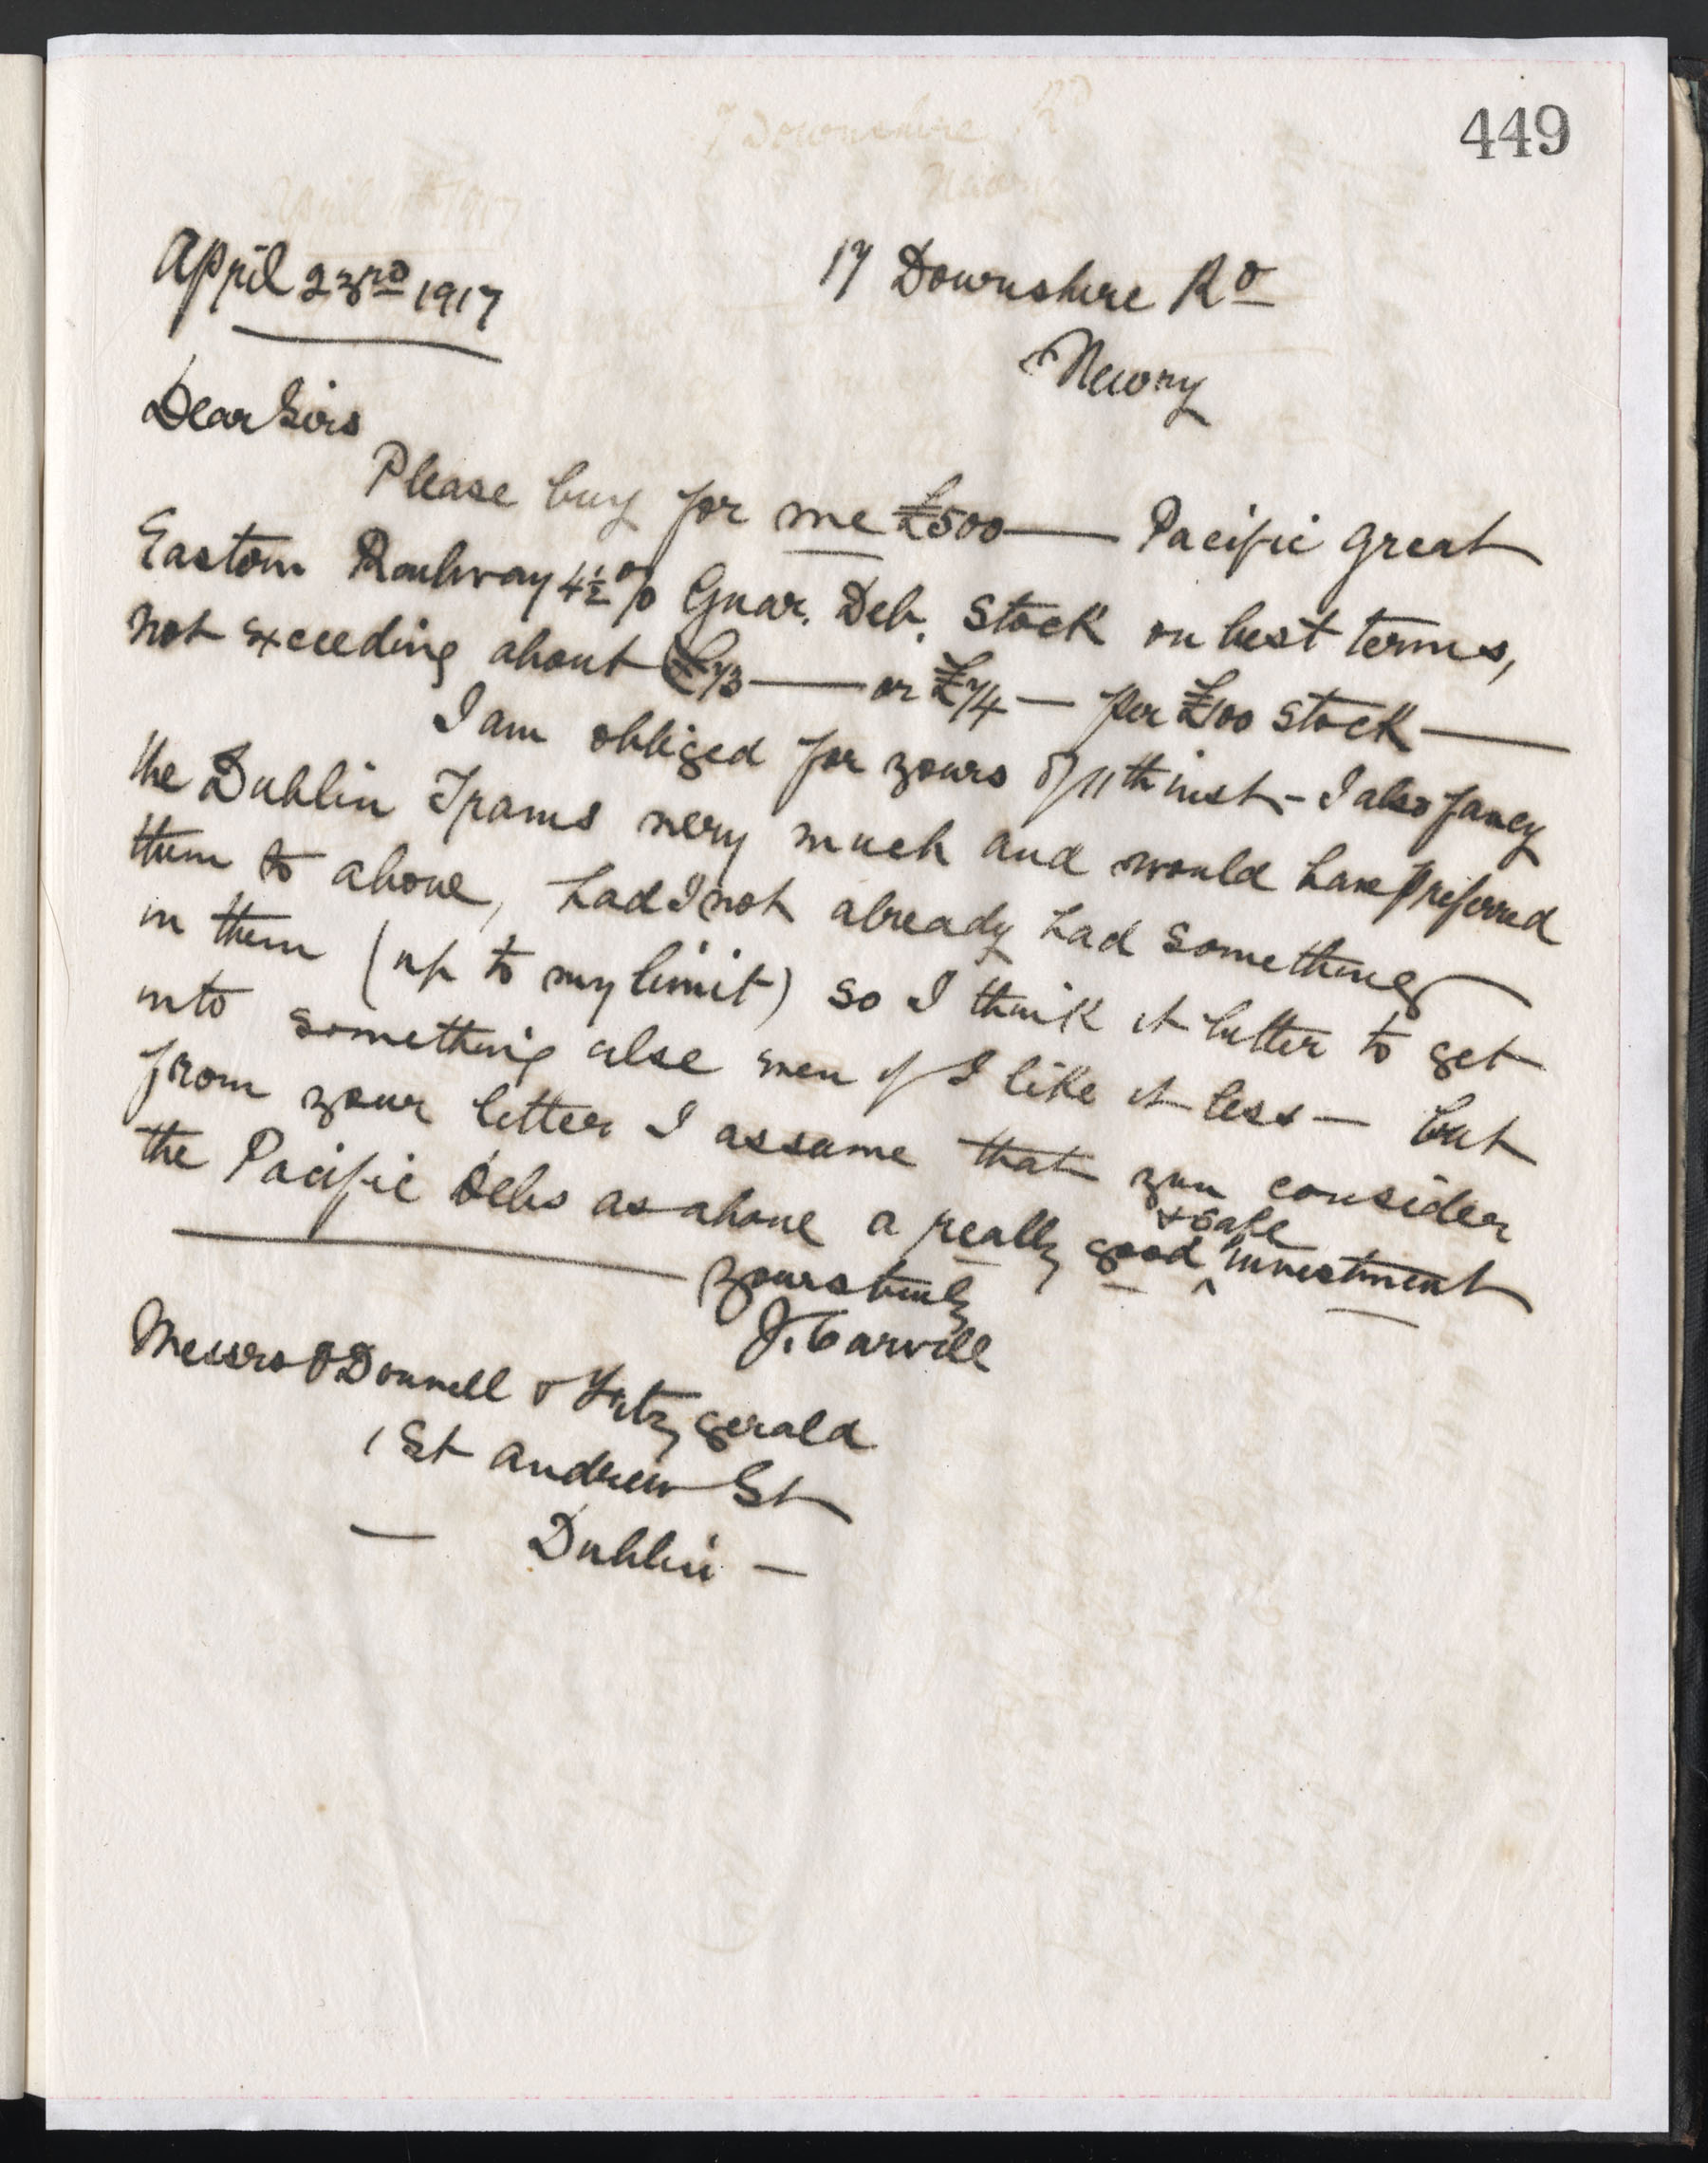 449
April 23rd 1917
17 Downshire Rd
Newry
Dear Sirs
Please buy for me £500 — Pacific Great
Eastern Railway 4½% Guar. Deb. Stock on best terms,
not exceeding about £73 — or £74 — per £100 stock —
I am obliged for yours of 11th inst - I also fancy
the Dublin Trams very much and would have preferred
them to above, had I not already had something
in them (up to my limit) so I think it better to get
into something else even if I like it less — but
from your letter I assume that you consider
the Pacific Debs as above a really good & safe investment
— yours truly
J. Carvill
Messrs O'Donnell & Fitzgerald
1 St Andrew St
— Dublin —